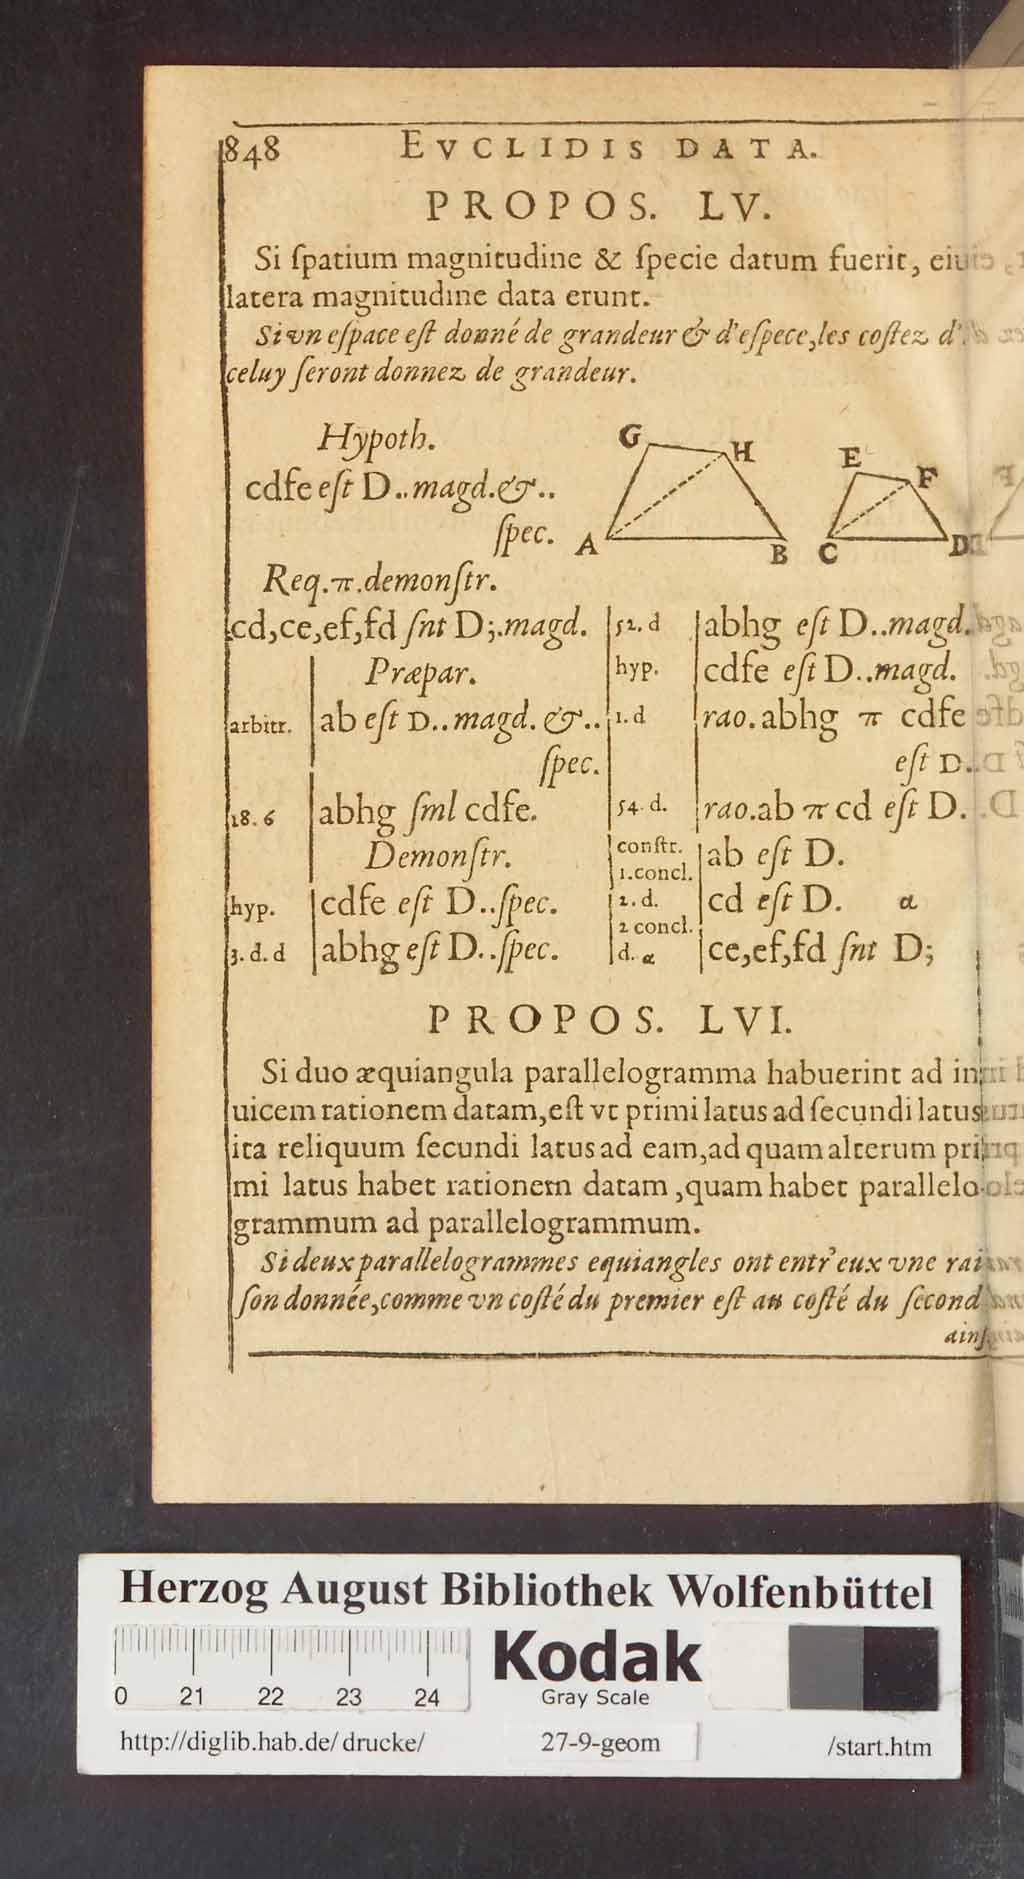 848 EVCLIDIS DATA.
PROPOS. LV.
Si ſpatium magnitudine & ſpecie datum fuerit, eiu
latera magnitudine data erunt.
Si vn eſpace eſt donné de grandeur & d'eſpece, les coſtez d'
celuy ſeront donnez de grandeur.
Hypoth.
cdfe eſt D..magd.&..
ſpec.
G H A B
E F C D
Req.π.demonſtr.
cd,ce,ef,fd ſnt D;.magd.
Præpar.
arbitr. ab eſt D..magd.&..
ſpec.
18.6 abhg ſml cdfe.
Demonſtr.
hyp. cdfe eſt D..ſpec.
3.d.d abhg eſt D..ſpec.
52.d abhg eſt D..magd.
hyp. cdfe eſt D..magd.
1.d rao.abhg π cdfe
eſt D..
54.d. rao.ab π cd eſt D.
conſtr.
1.concl. ab eſt D.
2.d. cd eſt D. α
2 concl.
d.α ce,ef,fd ſnt D;
PROPOS. LVI.
Si duo æquiangula parallelogramma habuerint ad in
uicem rationem datam, eſt vt primi latus ad ſecundi latus
ita reliquum ſecundi latus ad eam, ad quam alterum pri
mi latus habet rationem datam, quam habet parallelo-
grammum ad parallelogrammum.
Si deux parallelogrammes equiangles ont entr'eux vne rai
ſon donnée, comme vn coſté du premier eſt au coſté du ſecond
ainſ
Herzog August Bibliothek Wolfenbüttel
0 21 22 23 24
Kodak
Gray Scale
http://diglib.hab.de/drucke/ 27-9-geom /start.htm